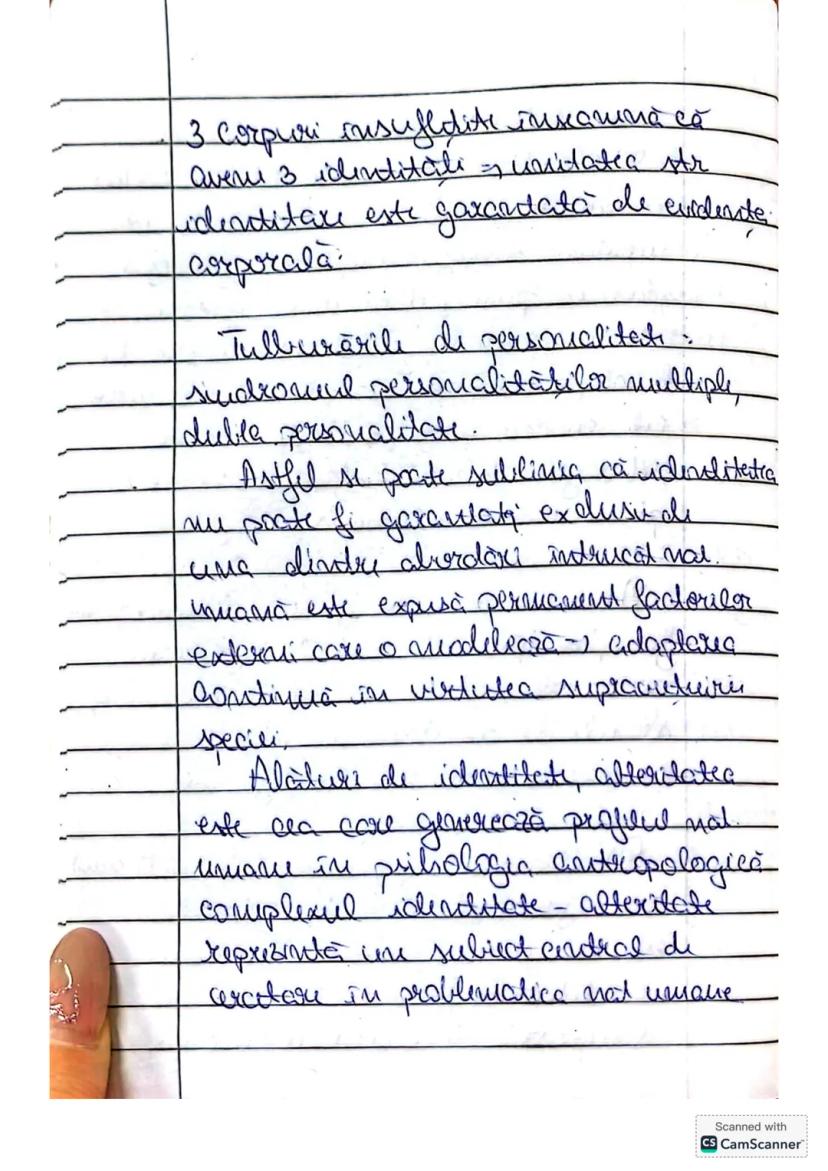 3 corpuri însuflețite înseamnă că
avem 3 identități => unitatea str
identitare este garantată de evidența
corporală.
Tulburările de personalitate:
sindromul personalităților multiple,
dubla personalitate.
Astfel se poate sublinia că identitatea
nu poate fi garantată exclusiv de
una dintre abordări întrucât nat.
umană este expusă permanent factorilor
externi care o modelează => adaptarea
continuă în virtutea supraviețuirii
speciei.
Alături de identitate, alteritatea
este cea care generează profilul nat.
umane în psihologia antropologică
complexul identitate - alteritate
reprezintă un subiect central de
cercetare în problematica nat umane
Scanned with
CS CamScanner